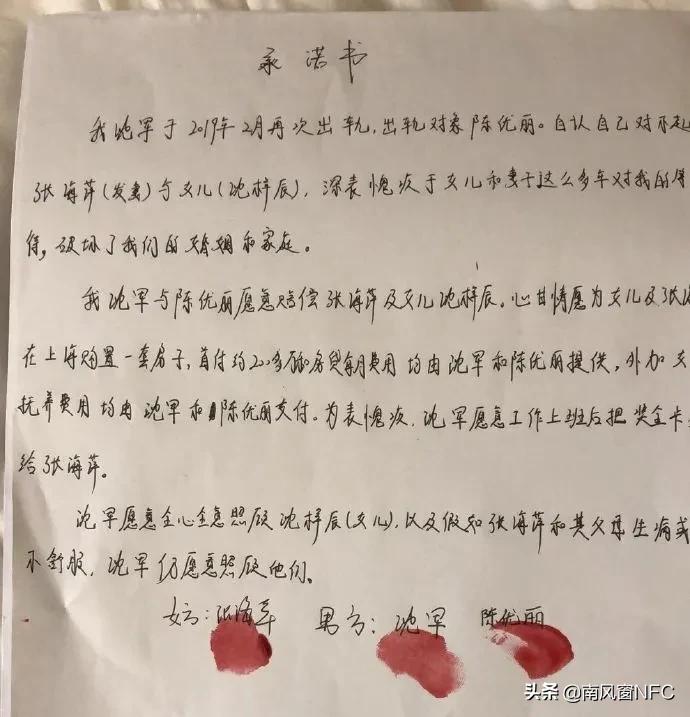 承诺书
我沈军于2019年2月再次出轨,出轨对象陈优丽。自认自己对不起
张海萍(发妻)与女儿(沈梓辰),深表愧疚于女儿和妻子这么多年对我的
待,破坏了我们的婚姻和家庭。
我沈军与陈优丽愿意赔偿张海萍及女儿沈梓辰。心甘情愿为女儿及张
在上海购置一套房子,首付约200多万和房贷每月费用均由沈军和陈优丽提供,外加女
抚养费用均由沈军和陈优丽支付。为表愧疚,沈军愿意工作上班后把奖金卡
给张海萍。
沈军愿意全心全意照顾沈梓辰(女儿),以及假如张海萍和其父母生病或
不舒服,沈军仍愿意照顾他们。
女方:张海萍 男方:沈军 陈优丽
头条@南风窗NFC